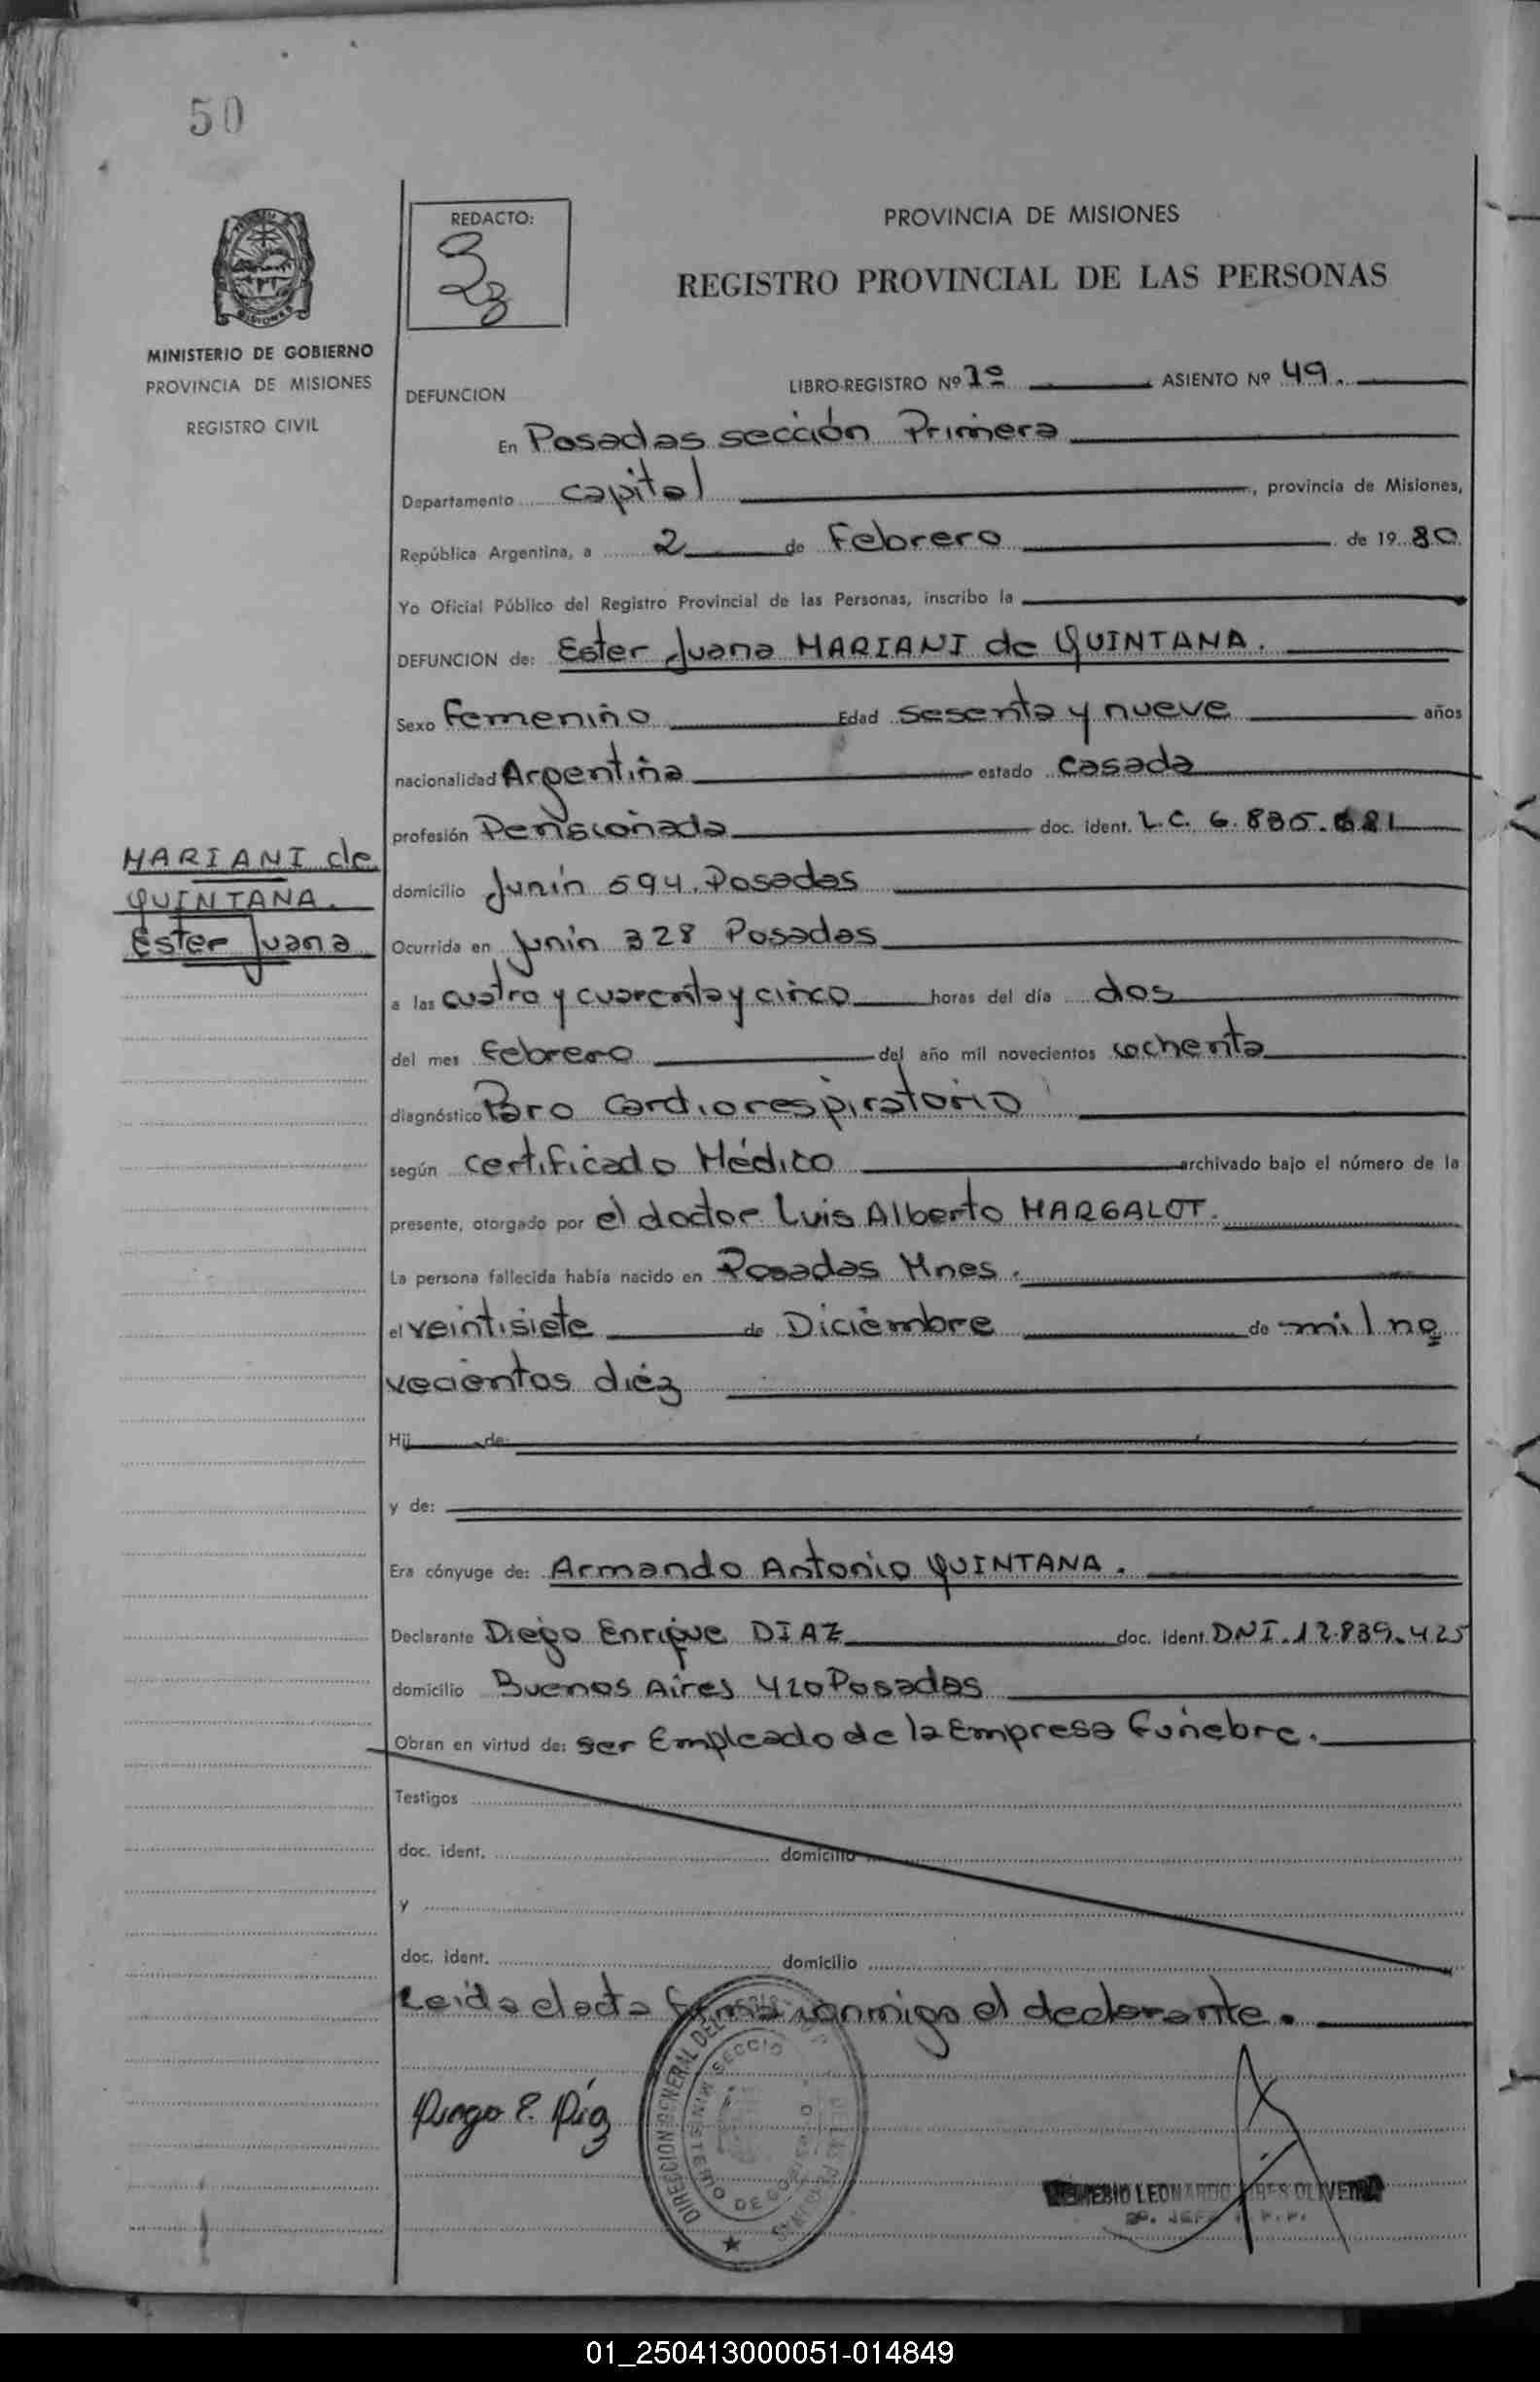 50
REDACTO:
PROVINCIA DE MISIONES
REGISTRO PROVINCIAL DE LAS PERSONAS
MINISTERIO DE GOBIERNO
PROVINCIA DE MISIONES
REGISTRO CIVIL
DEFUNCION LIBRO-REGISTRO Nº 1º ASIENTO Nº 49.
En Posadas sección Primera
Departamento capital, provincia de Misiones,
República Argentina, a 2 de Febrero de 1980
Yo Oficial Público del Registro Provincial de las Personas, inscribo la
DEFUNCION de: Ester Juana MARIANI de QUINTANA.
Sexo Femenino Edad sesenta y nueve años
nacionalidad Argentina estado casada
profesión Pensionada doc. ident. L.C. 6.835.681
MARIANI de
QUINTANA.
Ester Juana
domicilio Junín 594. Posadas
Ocurrida en Junín 328 Posadas
a las cuatro y cuarenta y cinco horas del día dos
del mes Febrero del año mil novecientos ochenta
diagnóstico Paro Cardiorespiratorio
según Certificado Médico archivado bajo el número de la
presente, otorgado por el doctor Luis Alberto MARGALOT.
La persona fallecida había nacido en Posadas Mnes.
el veintisiete de Diciembre de mil no
vecientos diéz
Hij de:
y de:
Era cónyuge de: Armando Antonio QUINTANA.
Declarante Diego Enrique DIAZ doc. ident. DNI.12.839.425
domicilio Buenos Aires 420 Posadas
Obran en virtud de: ser Empleado de la Empresa Funebre.
Testigos
doc. ident. domicilio
y
doc. ident. domicilio
Leida el acta firma conmigo el declarante.
DIRECCION GENERAL DEL
MINISTERIO DE GOBIERNO
SECCIO
Diego E. Díaz
LEONARDO PIRES OLIVEIRA
JEFE
01_250413000051-014849